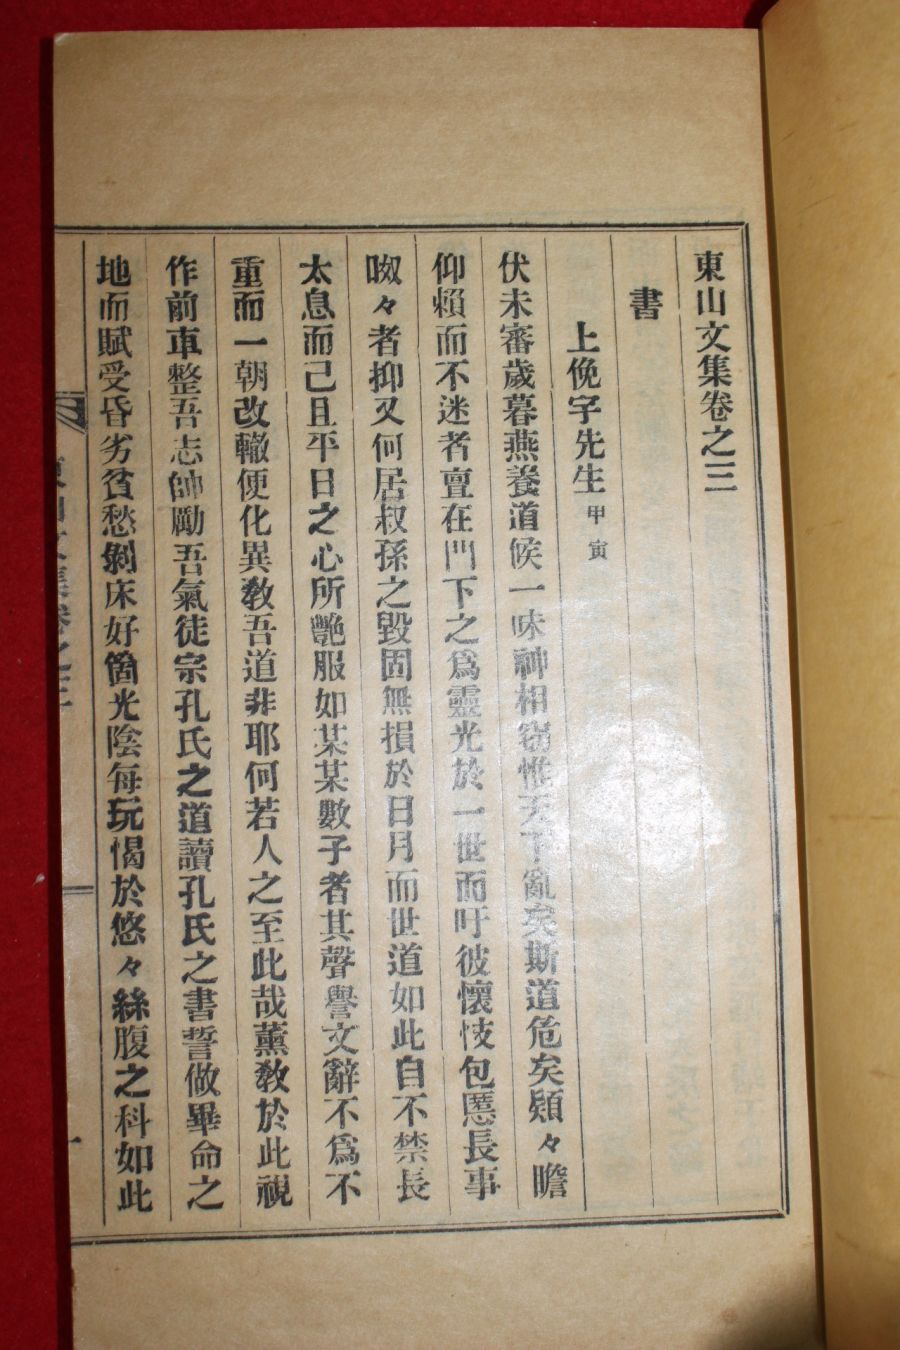 東山文集卷之三
書
上俛宇先生 甲寅
伏未審歲暮燕養道候一味神相窃惟天下亂矣斯道危矣顒々瞻
仰賴而不迷者亶在門下之爲靈光於一世而吁彼懷忮包慝長事
呶々者抑又何居叔孫之毀固無損於日月而世道如此自不禁長
太息而已且平日之心所艶服如某某數子者其聲譽文辭不爲不
重而一朝改轍便化異敎吾道非耶何若人之至此哉薰敎於此視
作前車整吾志帥勵吾氣徒宗孔氏之道讀孔氏之書誓做畢命之
地而賦受昏劣貧愁剝床好箇光陰每玩愒於悠々絲腹之科如此